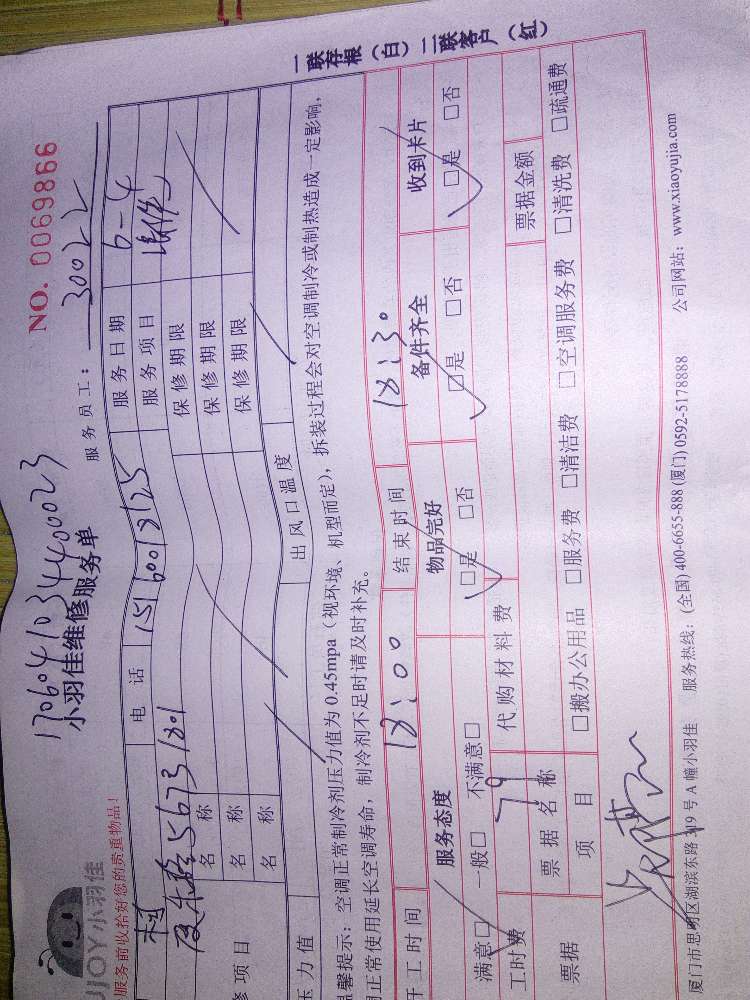 一联存根（白）二联客户（红）
NO. 0069866
170604103440023
UJOY小羽佳
小羽佳维修服务单
服务员工：30022
服务前收拾好您的贵重物品！
电话 15160012125 服务日期 6-4
5673 1801 服务项目
修项目 名称 保修期限
名称 保修期限
名称 保修期限
压力值 出风口温度
温馨提示：空调正常制冷剂压力值为 0.45mpa（视环境、机型而定），拆装过程会对空调制冷或制热造成一定影响，
正常使用延长空调寿命，制冷剂不足时请及时补充。
开工时间 18:00 结束时间 18:30
服务态度 物品完好 备件齐全 收到卡片
满意□ 一般□ 不满意□ □是 □否 □是 □否 □是 □否
工时费 79 代购材料费
票据 票据名称 票据金额
项目 □搬办公用品 □服务费 □清洁费 □空调服务费 □清洗费 □疏通费
厦门市思明区湖滨东路 319 号 A 幢小羽佳 服务热线：(全国) 400-6655-888 (厦门) 0592-5178888 公司网站：www.xiaoyujia.com